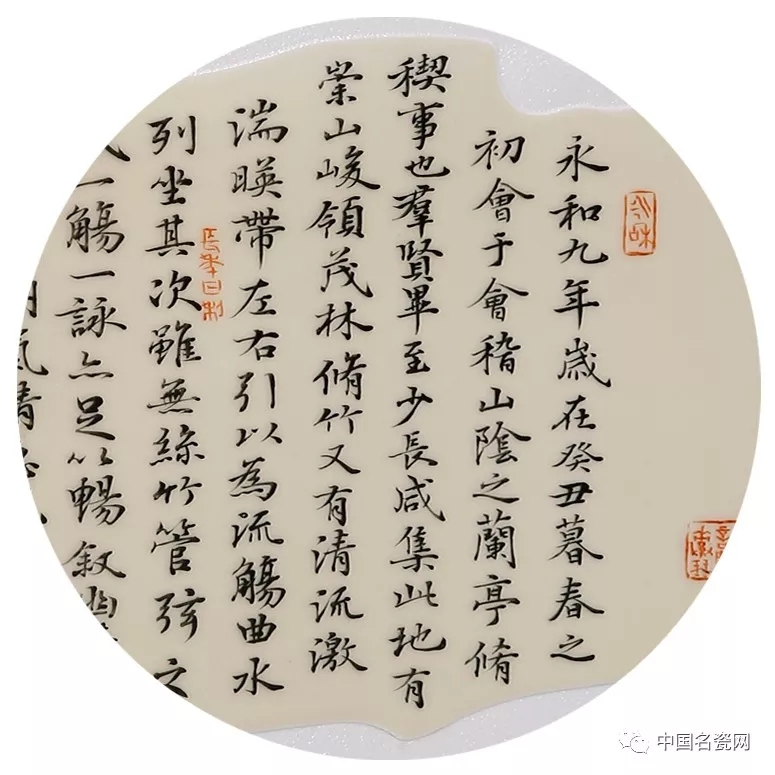 永和九年歲在癸丑暮春之
初會于會稽山陰之蘭亭脩
稧事也羣賢畢至少長咸集此地有
崇山峻領茂林脩竹又有清流激
湍暎帶左右引以為流觴曲水
列坐其次雖無絲竹管弦之
一觴一詠亦足以暢敘幽
氣清
中国名瓷网